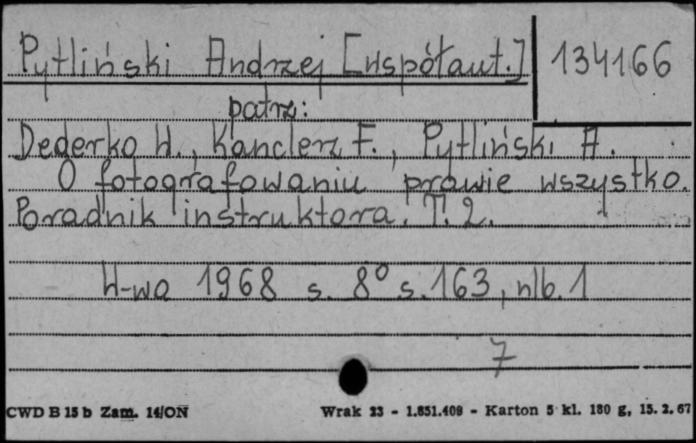 Pytliński Andrzej [współaut.] 134166
patrz:
Dederko W., Kanclerz F., Pytliński A.
O fotografowaniu prawie wszystko.
Poradnik instruktora. T. 2.
W-wa 1968 s. 8° s. 163, nlb. 1
7
CWD B 15 b Zam. 14/ON Wrak 23 - 1.851.408 - Karton 5 kl. 180 g, 15. 2. 67